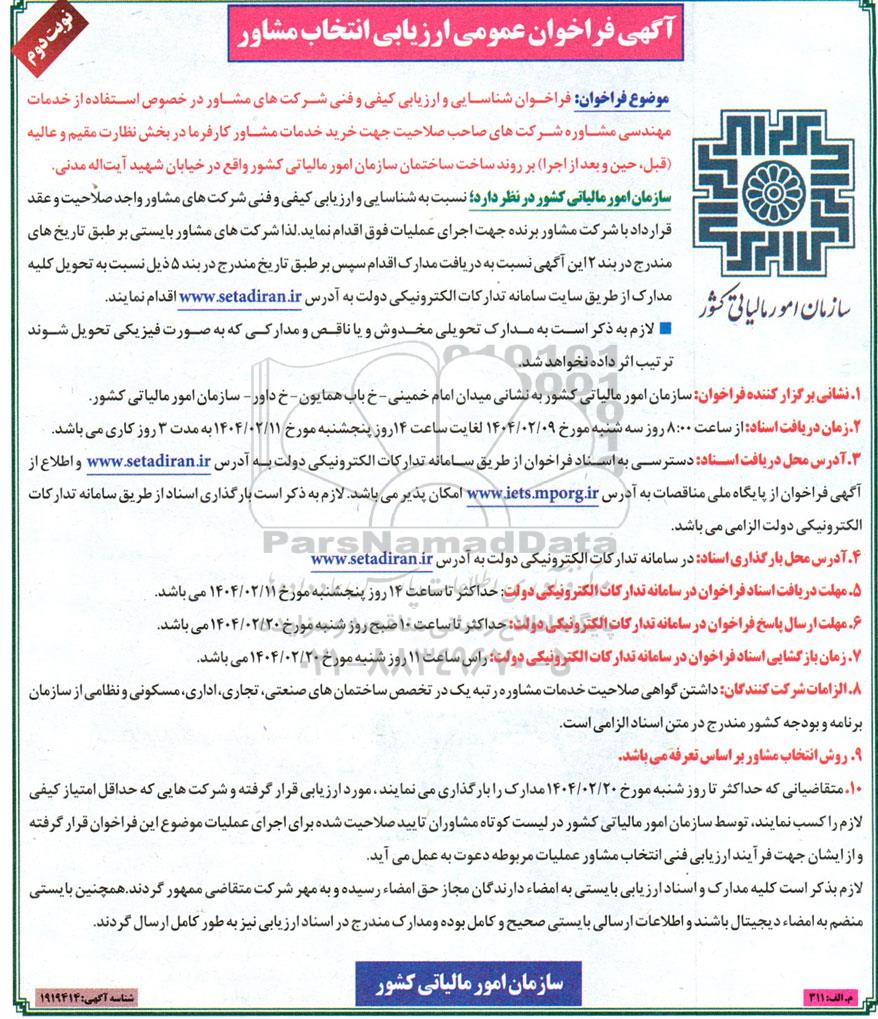 نوبت دوم
آگهی فراخوان عمومی ارزیابی انتخاب مشاور
موضوع فراخوان: فراخوان شناسایی و ارزیابی کیفی و فنی شرکت های مشاور در خصوص استفاده از خدمات
مهندسی مشاوره شرکت های صاحب صلاحیت جهت خرید خدمات مشاور کارفرما در بخش نظارت مقیم و عالیه
(قبل، حین و بعد از اجرا) بر روند ساخت ساختمان سازمان امور مالیاتی کشور واقع در خیابان شهید آیت‌اله مدنی.
سازمان امور مالیاتی کشور در نظر دارد؛ نسبت به شناسایی و ارزیابی کیفی و فنی شرکت های مشاور واجد صلاحیت و عقد
قرارداد با شرکت مشاور برنده جهت اجرای عملیات فوق اقدام نماید. لذا شرکت های مشاور بایستی بر طبق تاریخ های
مندرج در بند ۲ این آگهی نسبت به دریافت مدارک اقدام سپس بر طبق تاریخ مندرج در بند ۵ ذیل نسبت به تحویل کلیه
مدارک از طریق سایت سامانه تدارکات الکترونیکی دولت به آدرس www.setadiran.ir اقدام نمایند.
سازمان امور مالیاتی کشور
■ لازم به ذکر است به مدارک تحویلی مخدوش و یا ناقص و مدارکی که به صورت فیزیکی تحویل شوند
ترتیب اثر داده نخواهد شد.
۱. نشانی برگزار کننده فراخوان: سازمان امور مالیاتی کشور به نشانی میدان امام خمینی - خ باب همایون - خ داور - سازمان امور مالیاتی کشور.
۲. زمان دریافت اسناد: از ساعت ۸:۰۰ روز سه شنبه مورخ ۱۴۰۴/۰۲/۰۹ لغایت ساعت ۱۴ روز پنجشنبه مورخ ۱۴۰۴/۰۲/۱۱ به مدت ۳ روز کاری می باشد.
۳. آدرس محل دریافت اسناد: دسترسی به اسناد فراخوان از طریق سامانه تدارکات الکترونیکی دولت به آدرس www.setadiran.ir و اطلاع از
آگهی فراخوان از پایگاه ملی مناقصات به آدرس www.iets.mporg.ir امکان پذیر می باشد. لازم به ذکر است بارگذاری اسناد از طریق سامانه تدارکات
الکترونیکی دولت الزامی می باشد.
ParsNamadData
۴. آدرس محل بارگذاری اسناد: در سامانه تدارکات الکترونیکی دولت به آدرس www.setadiran.ir
۵. مهلت دریافت اسناد فراخوان در سامانه تدارکات الکترونیکی دولت: حداکثر تا ساعت ۱۴ روز پنجشنبه مورخ ۱۴۰۴/۰۲/۱۱ می باشد.
۶. مهلت ارسال پاسخ فراخوان در سامانه تدارکات الکترونیکی دولت: حداکثر تا ساعت ۱۰ صبح روز شنبه مورخ ۱۴۰۴/۰۲/۲۰ می باشد.
۷. زمان بازگشایی اسناد فراخوان در سامانه تدارکات الکترونیکی دولت: راس ساعت ۱۱ روز شنبه مورخ ۱۴۰۴/۰۲/۲۰ می باشد.
۰۲۱-۸۸۳۴۹۶۷۰-۵
۸. الزامات شرکت کنندگان: داشتن گواهی صلاحیت خدمات مشاوره رتبه یک در تخصص ساختمان های صنعتی، تجاری، اداری، مسکونی و نظامی از سازمان
برنامه و بودجه کشور مندرج در متن اسناد الزامی است.
۹. روش انتخاب مشاور بر اساس تعرفه می باشد.
۱۰. متقاضیانی که حداکثر تا روز شنبه مورخ ۱۴۰۴/۰۲/۲۰ مدارک را بارگذاری می نمایند، مورد ارزیابی قرار گرفته و شرکت هایی که حداقل امتیاز کیفی
لازم را کسب نمایند، توسط سازمان امور مالیاتی کشور در لیست کوتاه مشاوران تایید صلاحیت شده برای اجرای عملیات موضوع این فراخوان قرار گرفته
و از ایشان جهت فرآیند ارزیابی فنی انتخاب مشاور عملیات مربوطه دعوت به عمل می آید.
لازم بذکر است کلیه مدارک و اسناد ارزیابی بایستی به امضاء دارندگان مجاز حق امضاء رسیده و به مهر شرکت متقاضی ممهور گردند. همچنین بایستی
منضم به امضاء دیجیتال باشند و اطلاعات ارسالی بایستی صحیح و کامل بوده ومدارک مندرج در اسناد ارزیابی نیز به طور کامل ارسال گردند.
سازمان امور مالیاتی کشور
م.الف: ۳۱۱
شناسه آگهی: ۱۹۱۹۴۱۴